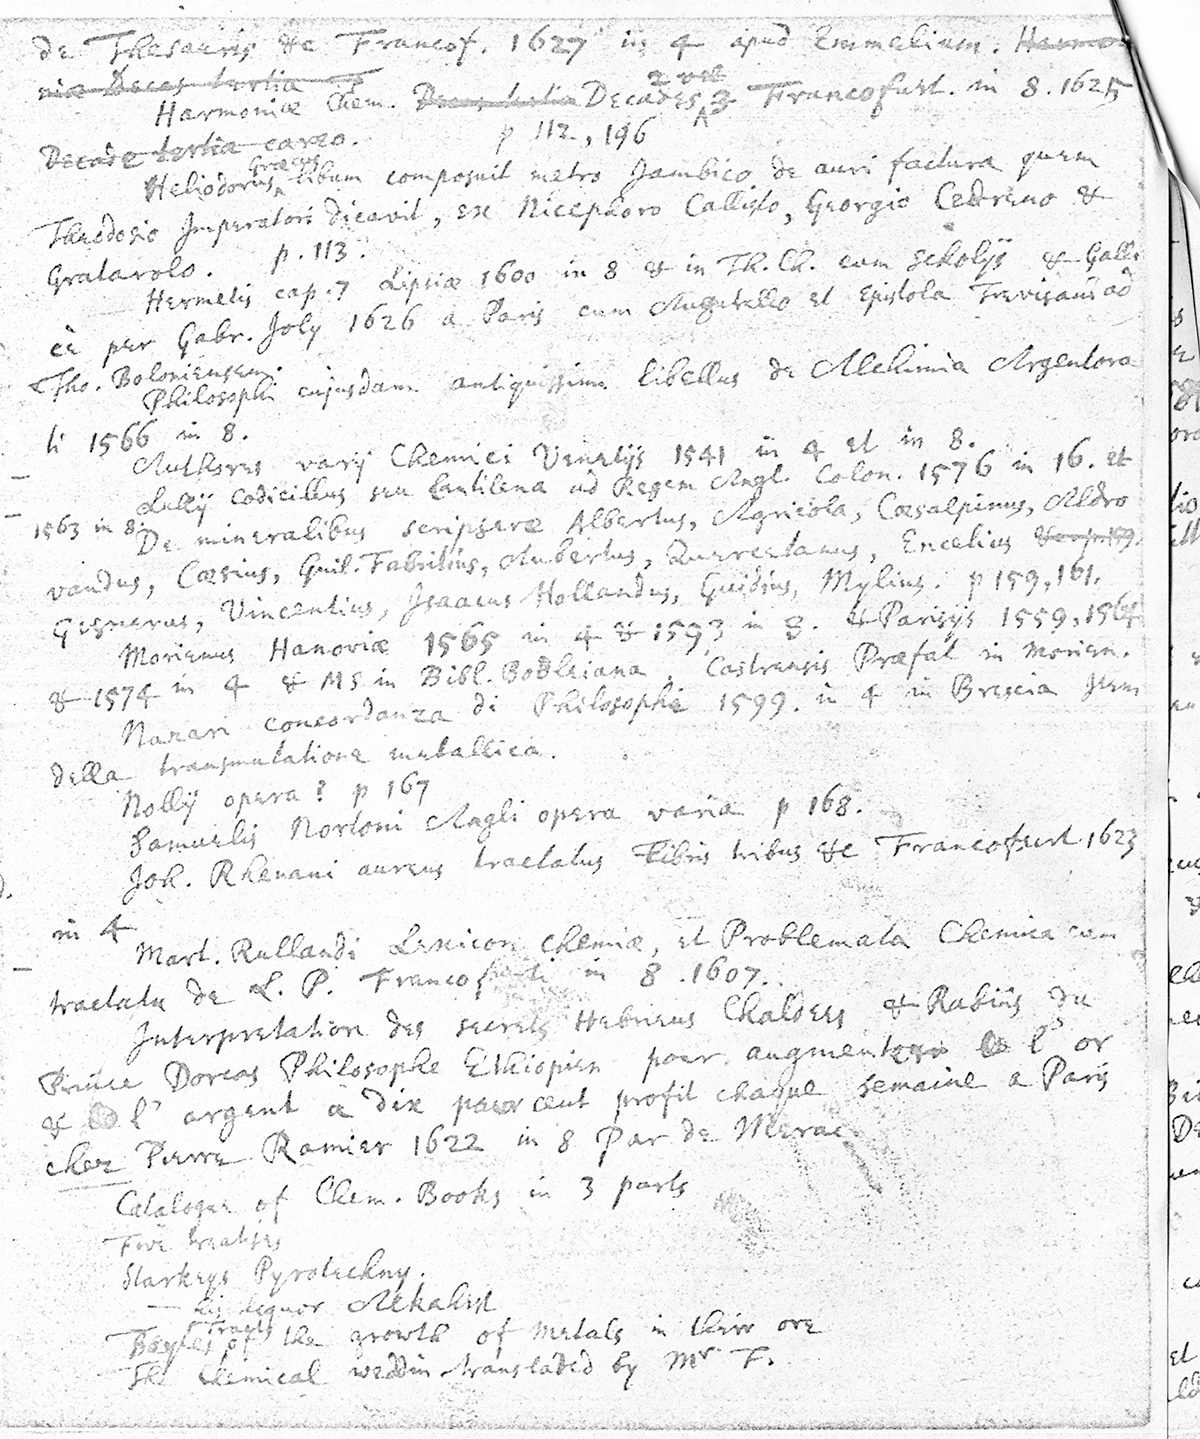 de Thesauris &c Francof. 1627 in 4 apud Emmelium. Harmo
niæ Decas tertia
Harmoniæ Chem. Decas tertia Decades 2 vel 3 Francofurt. in 8. 1625
Decade tertia careo. p 112, 196
Heliodorus Græcus librum composuit metro Jambico de auri factura quem
Theodosio Imperatori dicavit, ex Nicephoro Callisto, Georgio Cedreno &
Gratarolo. p. 113.
Hermetis cap. 7 Lipsiæ 1600 in 8 & in Th. Ch. cum Scholijs & Galli
cè per Gabr. Joly 1626 a Paris cum Augurello et Epistola Trevisani ad
Tho. Boloniensem.
Philosophi cujusdam antiquissimi libellus de Alchimia Argentora
ti 1566 in 8.
Authores varij Chemici Venetijs 1541 in 4 et in 8.
Lullij Codicillus seu Cantilena ad Regem Angl. Colon. 1576 in 16. et
1563 in 8.
De mineralibus scripsere Albertus, Agricola, Cæsalpinus, Aldro
vandus, Cæsius, Guil. Fabritius, Aubertus, Quercetanus, Encelius
Gesnerus, Vincentius, Isaacus Hollandus, Guidius, Mylius. p 159, 161.
Morienus Hanoviæ 1565 in 4 & 1593 in 8. & Parisijs 1559, 1564
& 1574 in 4 & MS in Bibl. Bodleiana, Castrensis Præfat in Morien.
Nazari concordanza di Philosophi 1599. in 4 in Brescia Item
della transmutatione metallica.
Nollij opera? p 167
Samuelis Nortoni Angli opera varia p 168.
Joh. Rhenani aureus tractatus Libris tribus &c Francofurt 1623
in 4
Mart. Rullandi Lexicon Chemiæ, et Problemata Chemica cum
tractatu de L. P. Francofurti in 8. 1607.
Interpretation des secrets Hebrieus Chaldees & Rabins du
Prince Dorcas Philosophe Ethiopien pour augmenter l'or
& l'argent a dix pour cent profit chaque semaine a Paris
chez Pierre Ramier 1622 in 8 Par de Merac
Catalogue of Chem. Books in 3 parts
Five treatises
Starkeys Pyrotechny.
— his liquor Alkahest
Boyles Tracts of the growth of Metals in their ore
The Chemical weddin translated by Mr F.